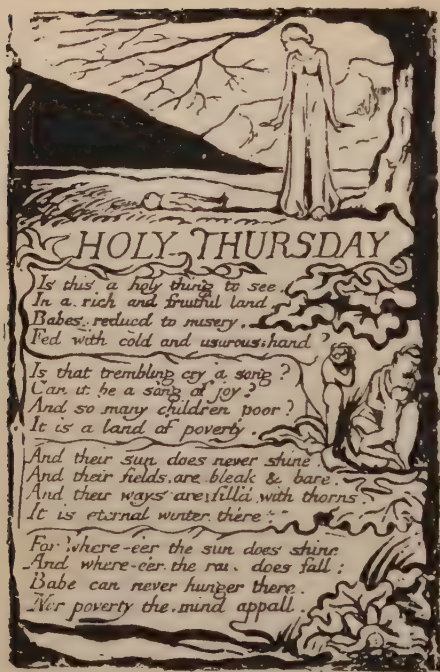 HOLY THURSDAY
Is this a holy thing to see.
In a rich and fruitful land
Babes reducd to misery.
Fed with cold and usurous hand?
Is that trembling cry a song?
Can it be a song of joy?
And so many children poor?
It is a land of poverty
And their sun does never shine.
And their fields are bleak & bare.
And their ways are fill'd with thorns
It is eternal winter there
For where-eer the sun does shine
And where-eer the rai. does fall:
Babe can never hunger there.
Nor poverty the mind appall.